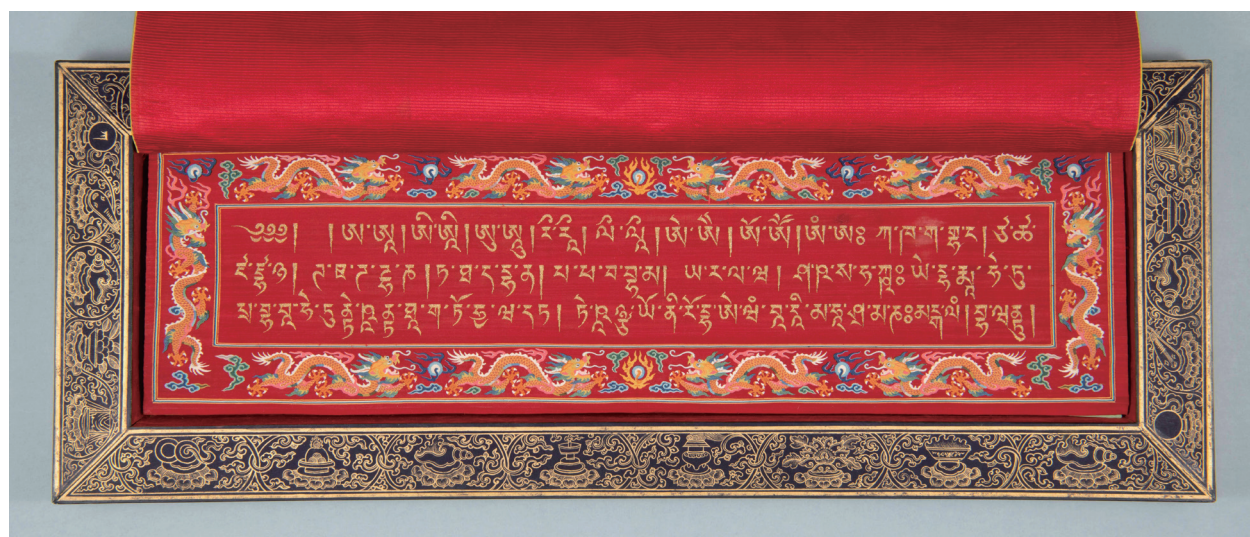 ༄༅༅། །ཨ་ཨཱ།ཨི་ཨཱི།ཨུ་ཨཱུ།རྀ་རཱྀ།ལྀ་ལཱྀ།ཨེ་ཨཻ།ཨོ་ཨཽ།ཨཾ་ཨཿ ཀ་ཁ་ག་གྷ་ང།ཙ་ཚ་
ཛ་ཛྷ་ཉ། ཊ་ཋ་ཌ་ཌྷ་ཎ།ཏ་ཐ་ད་དྷ་ན། པ་ཕ་བ་བྷ་མ། ཡ་ར་ལ་ཝ། ཤ་ཥ་ས་ཧ་ཀྵཿ ཡེ་དྷ་རྨཱ་ ཧེ་ཏུ་
པྲ་བྷ་བཱ་ཧེ་ཏུནྟེ་ཥཱནྟ་ཐཱ་ག་ཏོ་ཧྱ་ཝ་དཏ། ཏེ་ཥཱཉྩ་ཡོ་ནི་རོ་དྷ་ཨེ་ཝཾ་བཱ་དཱི་མ་ཧཱ་ཤྲ་མ་ཎཿམངྒལཾ།བྷ་ཝནྟུ།